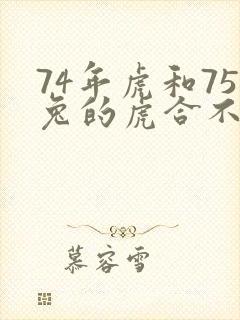 74年虎和75
兔的虎合不
慕容雪